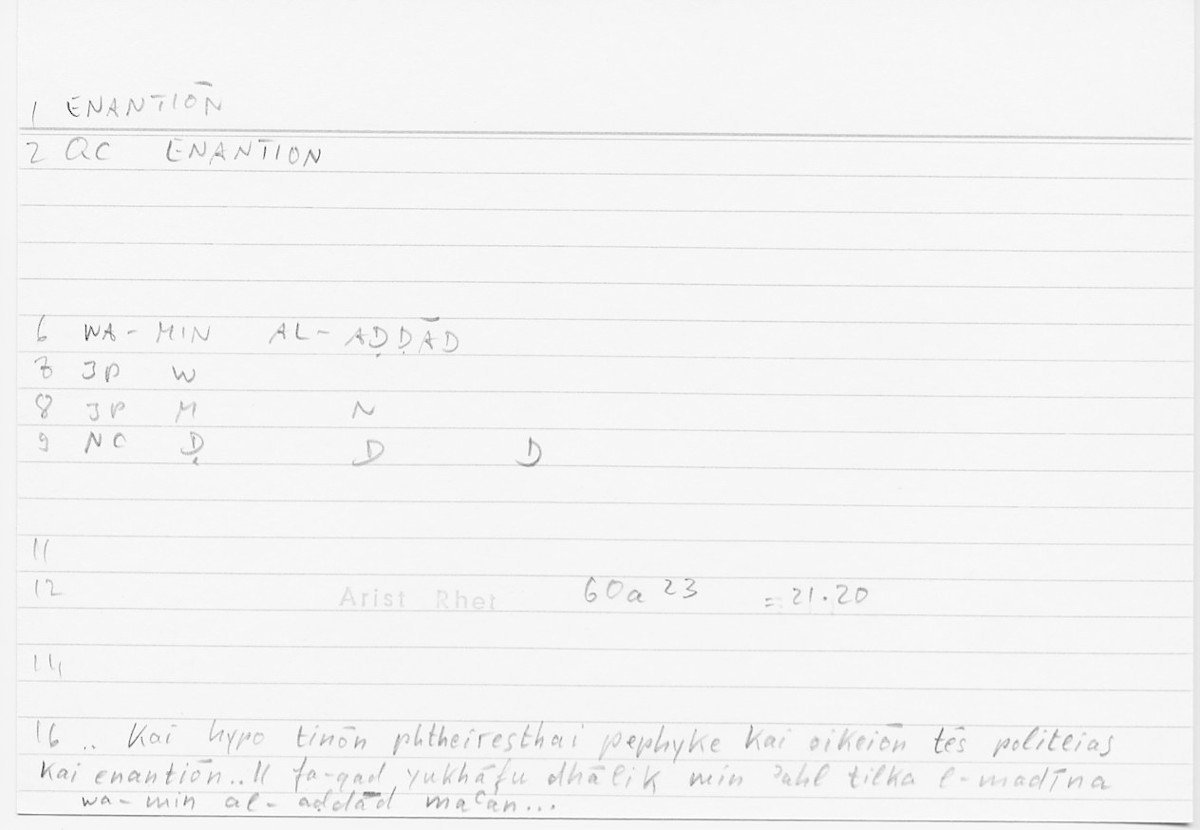 1 ENANTIŌN
2 QC ENANTION
6 WA-MIN AL-AḌḌĀD
7 JP W
8 JP M N
9 NC Ḍ D D
11
12 Arist Rhet 60a 23 = 21.20
14
16 .. Kai hypo tinōn phtheiresthai pephyke kai oikeiōn tēs politeias
kai enantiōn.. // fa-qad yukhāfu dhālik min ʾahl tilka l-madīna
wa-min al-aḍdād maʿan...